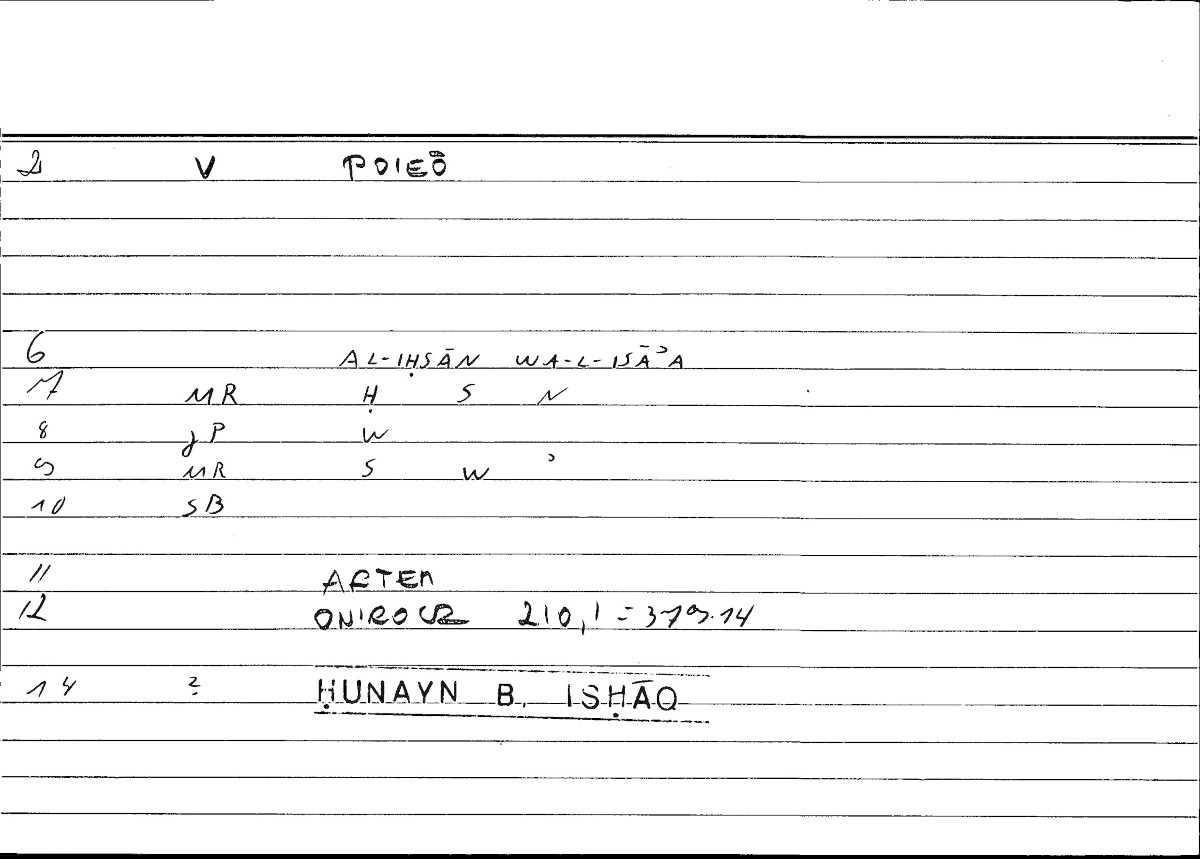 2 V POIEŌ
6 AL-IḤSĀN WA-L-ISĀʾA
7 MR Ḥ S N
8 JP W
9 MR S W ʾ
10 SB
11 ARTEM
12 ONIROCR 210,1 = 379.14
14 ? ḤUNAYN B. ISḤĀQ